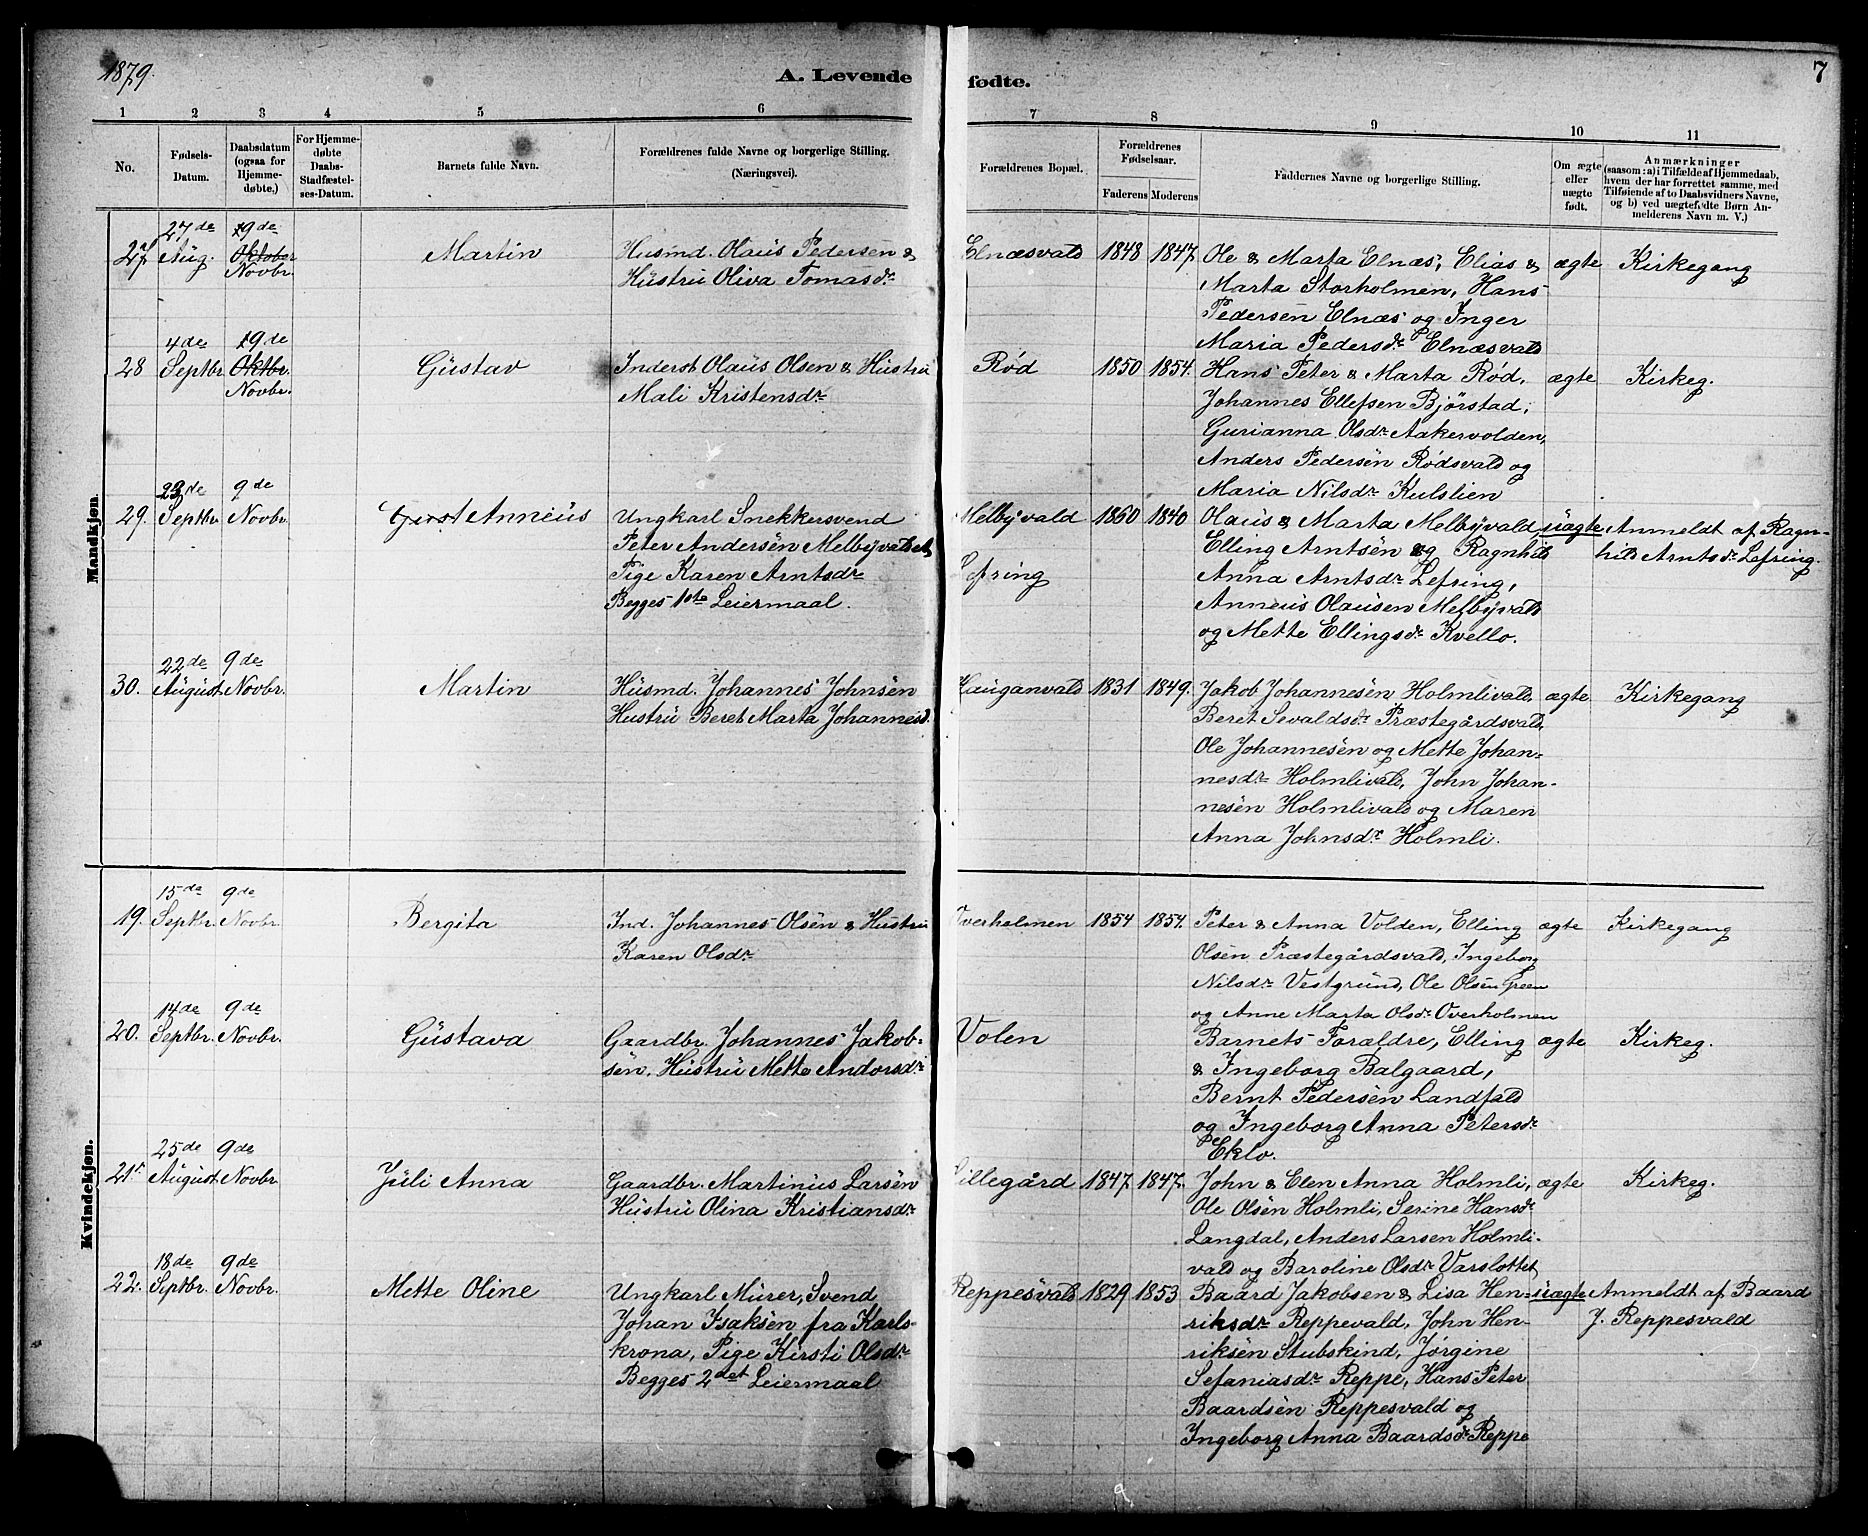 1879.
A. Levende fødte.
7
1 2 3 4 5 6 7 8 9 10 11
No.
Fødsels-
Datum.
Daabsdatum
(ogsaa for
Hjemme-
døbte,)
For Hjemme-
døbte
Daabs-
Stadfæstel-
ses-Datum.
Barnets fulde Navn.
Forældrenes fulde Navne og borgerlige Stilling.
(Næringsvei).
Forældrenes Bopæl.
Forældrenes
Fødselsaar.
Faderens Moderens
Faddernes Navne og borgerlige Stilling.
Om ægte
eller
uægte
født.
Anmærkninger
(saasom: a) i Tilfælde af Hjemmedaab,
hvem der har forrettet samme, med
Tilføiende af to Daabsvidners Navne,
og b) ved uægtefødte Børn An-
melderens Navn m. V.)
Mandkjøn.
27de 9de
27. Aug. Oktober Martin Husmd. Olaus Pedersen & Elnæsvald 1848 1847. Ole & Marta Elnæs, Elias & ægte Kirkegang
Novbr. Hustru Oliva Tomasdr. Marta Storholmen, Hans
Pedersen Elnæs og Inger
Maria Pedersdr. Elnæsvald
4de 9de
28 Septbr. Oktbr. Gustav Inderst Olaus Olsen & Hustru Rød 1850 1854. Hans Peter & Marta Rød, ægte Kirkeg.
Novbr. Mali Kristensdr. Johannes Ellefsen Bjørstad,
Gurianna Olsdr. Aakervolden,
Anders Pedersen Rødsvald og
Maria Nilsdr. Kulslien
23de 9de
29. Septbr. Novbr. Gust Anneus Ungkarl Snekkersvend Melbyvald 1860 1840 Olaus & Marta Melbyvald, uægte Anmeldt af Ragn-
Peter Andersen Melbyvald Elling Arntsen og Ragnhild hild Arntsdr. Lefring.
Pige Karen Arntsdr. Lefring Anna Arntsdr. Lefring,
Begges 1ste Leiermaal. Anneus Olausen Melbyvald
og Mette Ellingsdr. Kvello.
22de 9de
30. August Novbr. Martin Husmd. Johannes Johnsen Hauganvald 1831 1849. Jakob Johannesen Holmlivald, ægte Kirkegang
Hustru Beret Marta Johannesd. Beret Sevaldsdr. Præstegårdsvald,
Ole Johannesen og Mette Johan-
nesdr. Holmlivald, John Johan-
nesen Holmlivald og Maren
Anna Johnsdr. Holmli.
Kvindekjøn.
15de 9de
19. Septbr. Novbr. Bergita Ind. Johannes Olsen & Hustru Overholmen 1854 1854. Peter & Anna Volden, Elling ægte Kirkegang
Karen Olsdr. Olsen Præstegårdsvald, Ingeborg
Nilsdr. Vestgrund, Ole Olsen Green
og Anne Marta Olsdr. Overholmen
14de 9de
20. Septbr. Novbr. Gustava Gaardbr. Johannes Jakob- Volen Barnets Forældre, Elling ægte Kirkeg.
sen. Hustru Mette Andorsdr. & Ingeborg Balgaard,
Bernt Pedersen Landfald
og Ingeborg Anna Petersdr.
Eklo.
25de 9de
21. August Novbr. Juli Anna Gaardbr. Martinus Larsen Lillegård 1847. 1847. John & Elen Anna Holmli, ægte Kirkeg.
Hustru Olina Kristiansdr. Ole Olsen Holmli, Serine Hansdr.
Langdal, Anders Larsen Holmli-
vald og Baroline Olsdr. Varslottet
18de 9de
22. Septbr. Novbr. Mette Oline Ungkarl Murer, Svend Reppesvald 1829 1853 Baard Jakobsen & Lisa Hen- uægte Anmeldt af Baard
Johan Isaksen fra Karls- riksdr. Reppevald, John Hen- J. Reppesvald
krona, Pige Kirsti Olsdr. riksen Stubskind, Jørgine
Begges 2det Leiermaal Sefaniasdr. Reppe, Hans Peter
Baardsen Reppesvald og
Ingeborg Anna Baardsdr. Reppe